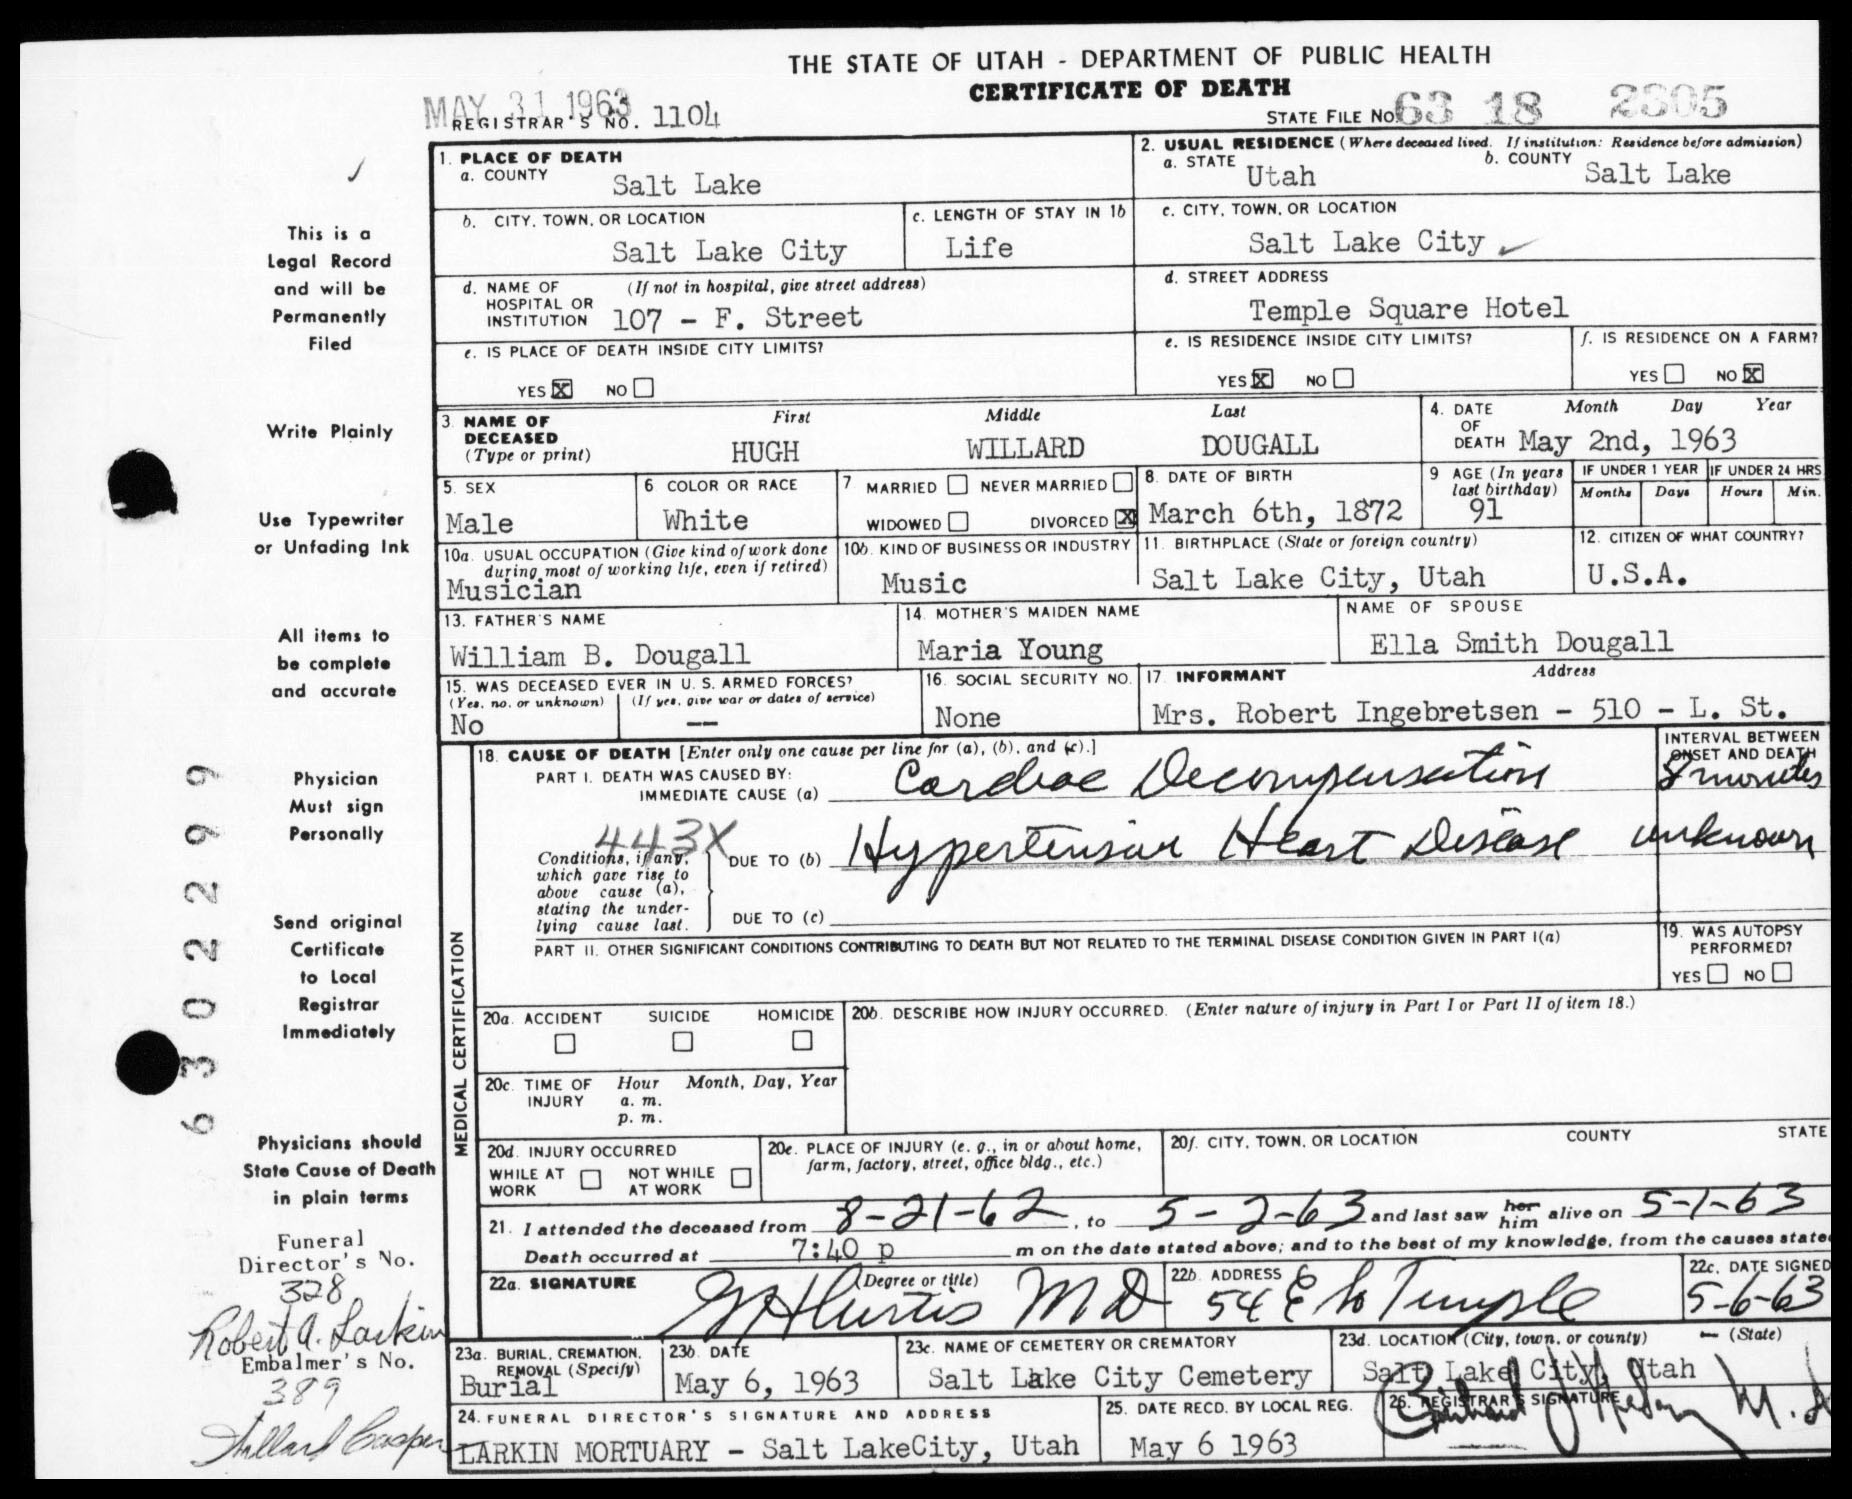 THE STATE OF UTAH - DEPARTMENT OF PUBLIC HEALTH
CERTIFICATE OF DEATH
MAY 31 1963
REGISTRAR'S NO. 1104
STATE FILE NO. 63 18 2305
1. PLACE OF DEATH
a. COUNTY Salt Lake
2. USUAL RESIDENCE (Where deceased lived. If institution: Residence before admission)
a. STATE Utah b. COUNTY Salt Lake
b. CITY, TOWN, OR LOCATION Salt Lake City
c. LENGTH OF STAY IN 1b Life
c. CITY, TOWN, OR LOCATION Salt Lake City
d. NAME OF HOSPITAL OR INSTITUTION (If not in hospital, give street address)
107 - F. Street
d. STREET ADDRESS
Temple Square Hotel
e. IS PLACE OF DEATH INSIDE CITY LIMITS?
YES X NO
e. IS RESIDENCE INSIDE CITY LIMITS?
YES X NO
f. IS RESIDENCE ON A FARM?
YES NO X
3. NAME OF DECEASED (Type or print)
First Middle Last
HUGH WILLARD DOUGALL
4. DATE OF DEATH Month Day Year
May 2nd, 1963
5. SEX Male
6. COLOR OR RACE White
7. MARRIED NEVER MARRIED
WIDOWED DIVORCED X
8. DATE OF BIRTH March 6th, 1872
9 AGE (In years last birthday) 91
IF UNDER 1 YEAR Months Days
IF UNDER 24 HRS. Hours Min.
10a. USUAL OCCUPATION (Give kind of work done during most of working life, even if retired)
Musician
10b. KIND OF BUSINESS OR INDUSTRY
Music
11. BIRTHPLACE (State or foreign country)
Salt Lake City, Utah
12. CITIZEN OF WHAT COUNTRY?
U.S.A.
13. FATHER'S NAME
William B. Dougall
14. MOTHER'S MAIDEN NAME
Maria Young
NAME OF SPOUSE
Ella Smith Dougall
15. WAS DECEASED EVER IN U. S. ARMED FORCES?
(Yes, no, or unknown) (If yes, give war or dates of service)
No --
16. SOCIAL SECURITY NO.
None
17. INFORMANT Address
Mrs. Robert Ingebretsen - 510 - L. St.
18. CAUSE OF DEATH [Enter only one cause per line for (a), (b), and (c).]
INTERVAL BETWEEN ONSET AND DEATH
PART I. DEATH WAS CAUSED BY:
IMMEDIATE CAUSE (a) Cardiac Decompensation 8 minutes
443X
Conditions, if any, which gave rise to above cause (a), stating the underlying cause last.
DUE TO (b) Hypertensive Heart Disease unknown
DUE TO (c)
PART II. OTHER SIGNIFICANT CONDITIONS CONTRIBUTING TO DEATH BUT NOT RELATED TO THE TERMINAL DISEASE CONDITION GIVEN IN PART I(a)
19. WAS AUTOPSY PERFORMED?
YES NO
MEDICAL CERTIFICATION
20a. ACCIDENT SUICIDE HOMICIDE
20b. DESCRIBE HOW INJURY OCCURRED. (Enter nature of injury in Part I or Part II of item 18.)
20c. TIME OF INJURY Hour Month, Day, Year
a. m.
p. m.
20d. INJURY OCCURRED
WHILE AT WORK NOT WHILE AT WORK
20e. PLACE OF INJURY (e. g., in or about home, farm, factory, street, office bldg., etc.)
20f. CITY, TOWN, OR LOCATION COUNTY STATE
21. I attended the deceased from 8-21-62, to 5-2-63 and last saw her him alive on 5-1-63
Death occurred at 7:40 p m on the date stated above; and to the best of my knowledge, from the causes state
22a. SIGNATURE (Degree or title) Curtis MD
22b. ADDRESS 54 E So Temple
22c. DATE SIGNED 5-6-63
23a. BURIAL, CREMATION, REMOVAL (Specify)
Burial
23b. DATE
May 6, 1963
23c. NAME OF CEMETERY OR CREMATORY
Salt Lake City Cemetery
23d. LOCATION (City, town, or county) (State)
Salt Lake City, Utah
24. FUNERAL DIRECTOR'S SIGNATURE AND ADDRESS
LARKIN MORTUARY - Salt LakeCity, Utah
25. DATE RECD. BY LOCAL REG.
May 6 1963
26. REGISTRAR'S SIGNATURE
This is a
Legal Record
and will be
Permanently
Filed
Write Plainly
Use Typewriter
or Unfading Ink
All items to
be complete
and accurate
Physician
Must sign
Personally
Send original
Certificate
to Local
Registrar
Immediately
Physicians should
State Cause of Death
in plain terms
Funeral
Director's No.
328
Robert A. Larkin
Embalmer's No.
389
Willard Casper
63022299